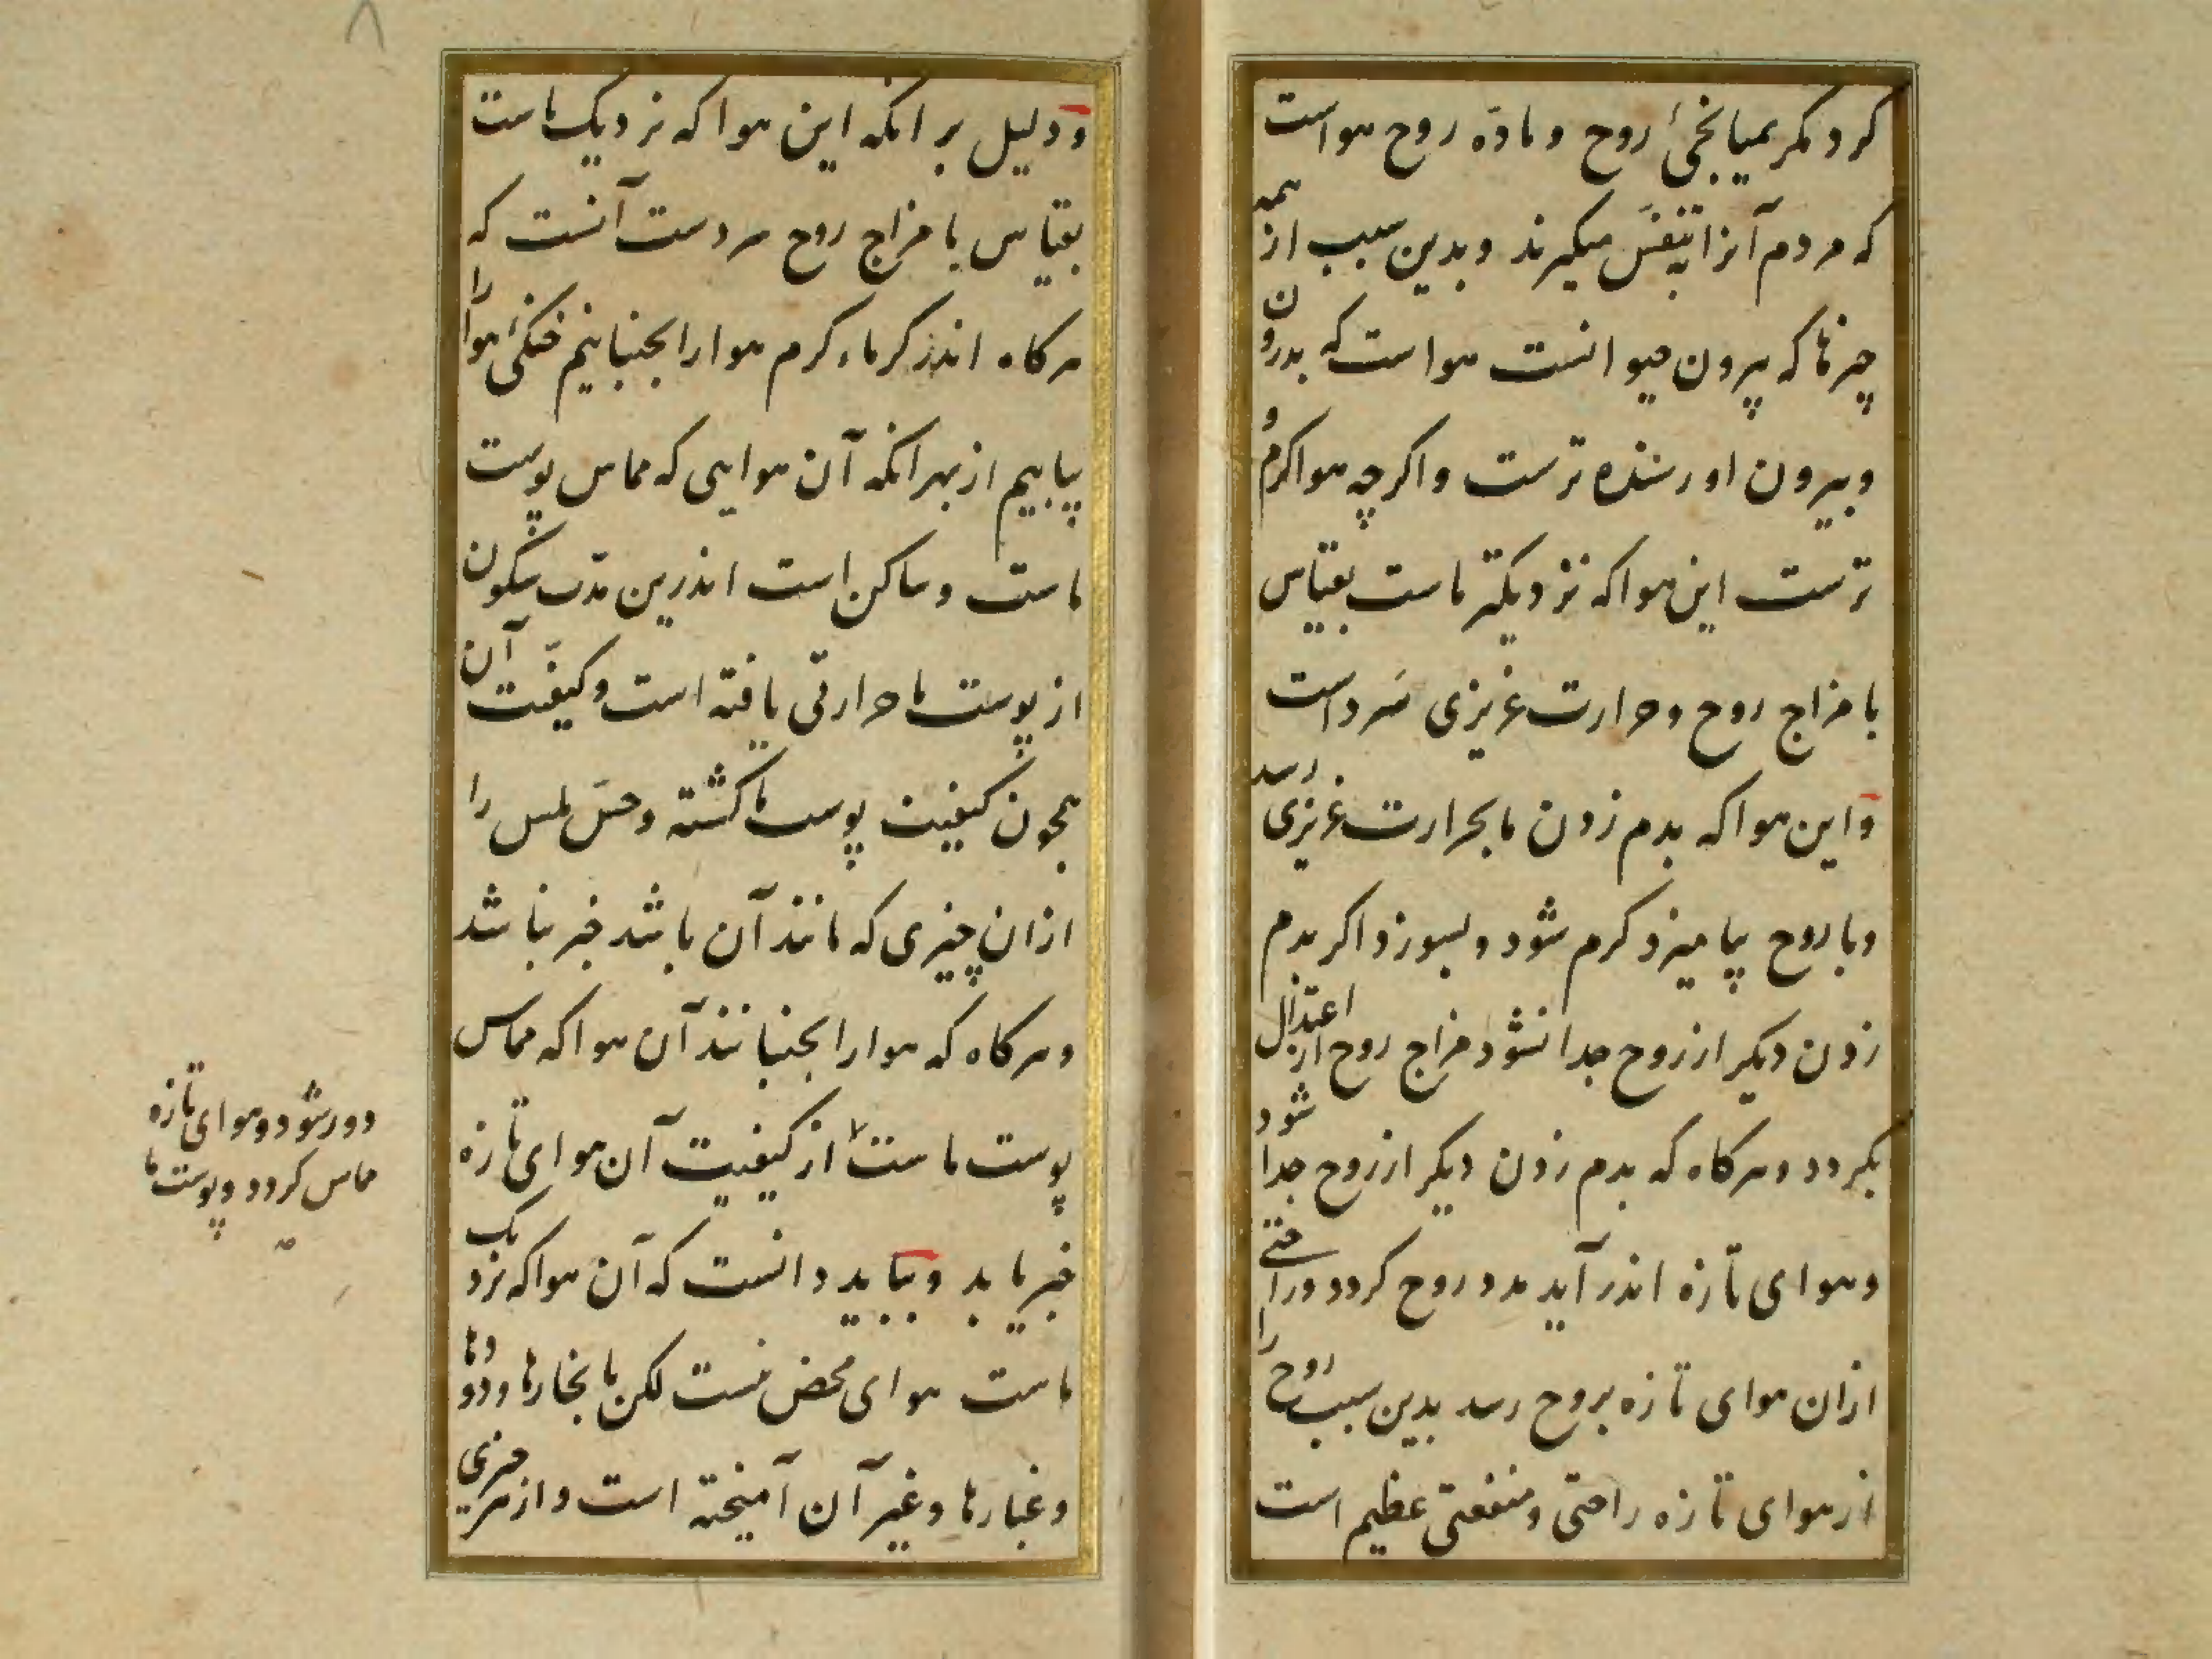 کرد مکر بمیانجیٔ روح و مادّه روح هواست
که مردم آنرا بتنفّس میکیرند و بدین سبب از همه
چیزها که بیرون حیوانست هواست که بدرون
و بیرون او رسنده ترست و اکرچه هوا کرم و
ترست این هوا که نزدیکتر ماست بقیاس
با مزاج روح و حرارت غریزی سرد است
و این هوا که بدم زدن ما بحرارت غریزی رسد
و با روح بیامیزد کرم شود و بسوزد اکر بدم
زدن دیکر از روح جدا نشود مزاج روح از اعتدال
بکردد و هرکاه که بدم زدن دیکر از روح جدا شود
و هوای تازه اندر آید مدد روح کردد و راحتی
ازان هوای تازه بروح رسد بدین سبب روح را
از هوای تازه راحتی و منفعتی عظیم است
و دلیل بر انکه این هوا که نزدیک ماست
بقیاس با مزاج روح سردست آنست که
هرکاه اندر کرماء کرم هوا را بجنبانیم خنکیٔ هوا را
بیابیم از بهر انکه آن هوایی که مماس پوست
ماست و ساکن است اندرین مدّت سکون
از پوست ما حرارتی یافته است و کیفیّت آن
همچون کیفیت پوست ما کشته و حسّ لمس را
ازان چیزی که مانند آن باشد خبر نباشد
و هرکاه که هوا را بجنبانند آن هوا که مماس
پوست ماست از کیفیت آن هوای تازه
دور شود و هوای تازه
مماس کردد و پوست ما
خبر یابد و بباید دانست که آن هوا که نزدیک
ماست هوای محض نیست لکن با بخارها و دودها
و غبارها و غیر آن آمیخته است و از هر چیزی